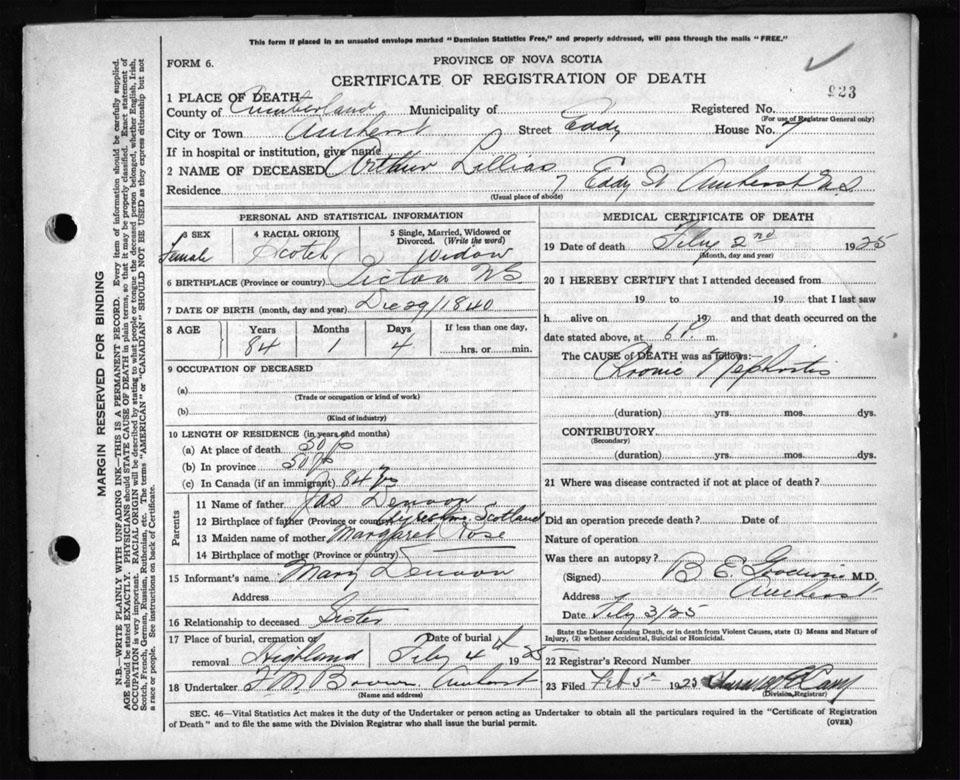 This form if placed in an unsealed envelope marked "Dominion Statistics Free," and properly addressed, will pass through the mails "FREE."
FORM 6.
PROVINCE OF NOVA SCOTIA
CERTIFICATE OF REGISTRATION OF DEATH
923
1 PLACE OF DEATH
County of Cumberland Municipality of Registered No.
(For use of Registrar General only)
City or Town Amherst Street Eddy House No. 7
If in hospital or institution, give name
2 NAME OF DECEASED Arthur Lillias
Residence 7 Eddy St Amherst N.S
(Usual place of abode)
PERSONAL AND STATISTICAL INFORMATION
3 SEX 4 RACIAL ORIGIN 5 Single, Married, Widowed or Divorced. (Write the word)
Female Scotch Widow
6 BIRTHPLACE (Province or country) Pictou NS
7 DATE OF BIRTH (month, day and year) Dec 29/1840
8 AGE Years Months Days If less than one day,
84 1 4 hrs. or min.
9 OCCUPATION OF DECEASED
(a)
(Trade or occupation or kind of work)
(b)
(Kind of industry)
10 LENGTH OF RESIDENCE (in years and months)
(a) At place of death 50
(b) In province 50
(c) In Canada (if an immigrant) 84
Parents
11 Name of father Jas Denoon
12 Birthplace of father (Province or country) Scotland
13 Maiden name of mother Margaret Rose
14 Birthplace of mother (Province or country)
15 Informant's name Mary Denoon
Address
16 Relationship to deceased Sister
17 Place of burial, cremation or removal Highland Date of burial Feby 4th 1925
18 Undertaker F M Brown Amherst
(Name and address)
MEDICAL CERTIFICATE OF DEATH
19 Date of death Feby 2nd 1925
(Month, day and year)
20 I HEREBY CERTIFY that I attended deceased from
19 to 19 that I last saw
h alive on 19 and that death occurred on the
date stated above, at 6 P. m.
The CAUSE of DEATH was as follows:—
Nephritis
(duration) yrs. mos. dys.
CONTRIBUTORY
(Secondary)
(duration) yrs. mos. dys.
21 Where was disease contracted if not at place of death?
Did an operation precede death? Date of
Nature of operation
Was there an autopsy?
(Signed) B E Goodwin M.D.
Address Amherst
Date Feby 3/25
State the Disease causing Death, or in death from Violent Causes, state (1) Means and Nature of
Injury, (2) whether Accidental, Suicidal or Homicidal.
22 Registrar's Record Number
23 Filed Feb 5th 1925
(Division Registrar)
SEC. 46—Vital Statistics Act makes it the duty of the Undertaker or person acting as Undertaker to obtain all the particulars required in the "Certificate of Registration
of Death" and to file the same with the Division Registrar who shall issue the burial permit.
(OVER)
MARGIN RESERVED FOR BINDING
N.B.—WRITE PLAINLY WITH UNFADING INK—THIS IS A PERMANENT RECORD. Every item of information should be carefully supplied.
AGE should be stated EXACTLY. PHYSICIANS should STATE CAUSE OF DEATH in plain terms, so that it may be properly classified. Exact statement of
OCCUPATION is very important. RACIAL ORIGIN will be described by stating to what people or tongue the deceased person belonged, whether English, Irish,
Scotch, French, German, Russian, Ruthenian, etc. The terms "AMERICAN" or "CANADIAN" SHOULD NOT BE USED as they express citizenship but not
a race or people. See instructions on back of Certificate.